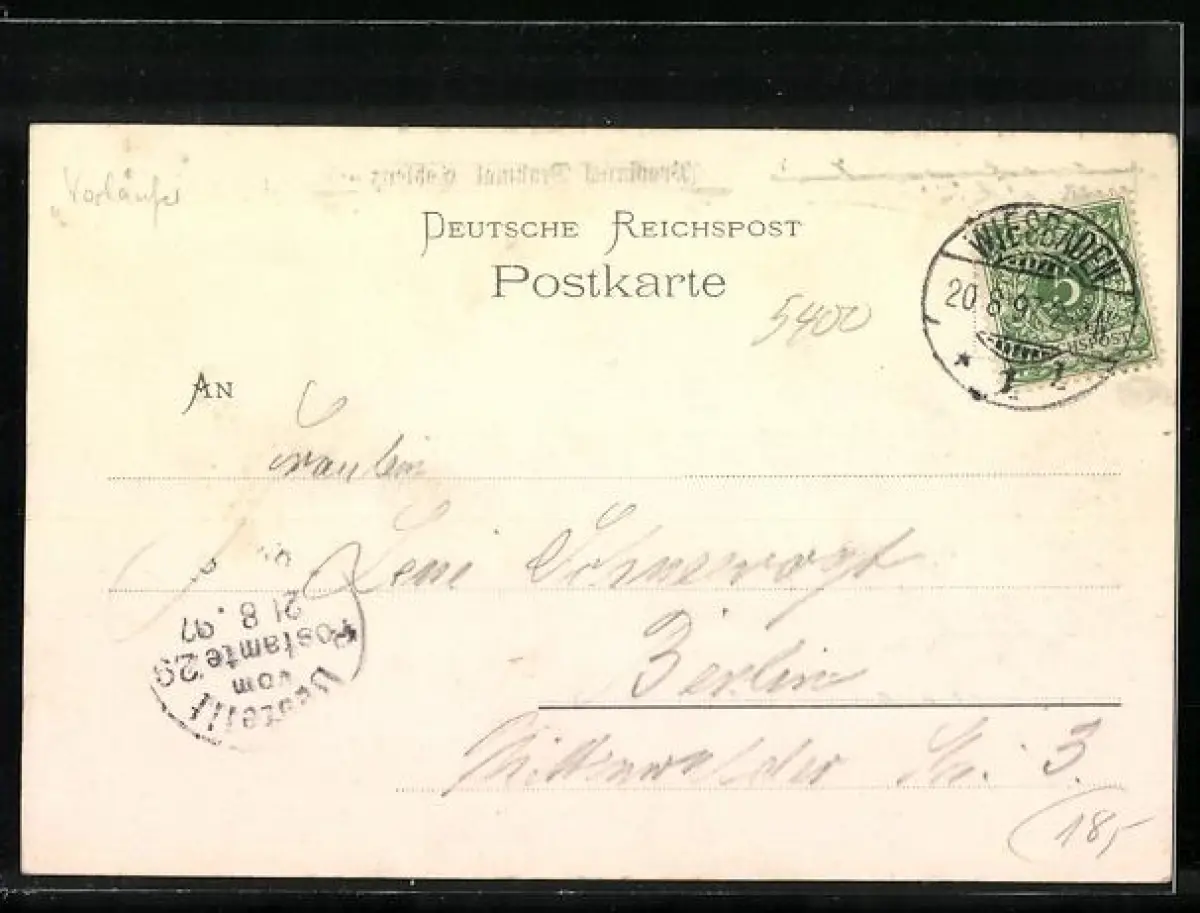 "Vorläufer"
DEUTSCHE REICHSPOST
Postkarte
WIESBADEN
20 8 97
* 1
5
REICHSPOST
5400
AN
Fräulein
Leni
Berlin
Mittenwalder Str. 3.
Bestellt
vom
Postamte 29
21 8. 97
185